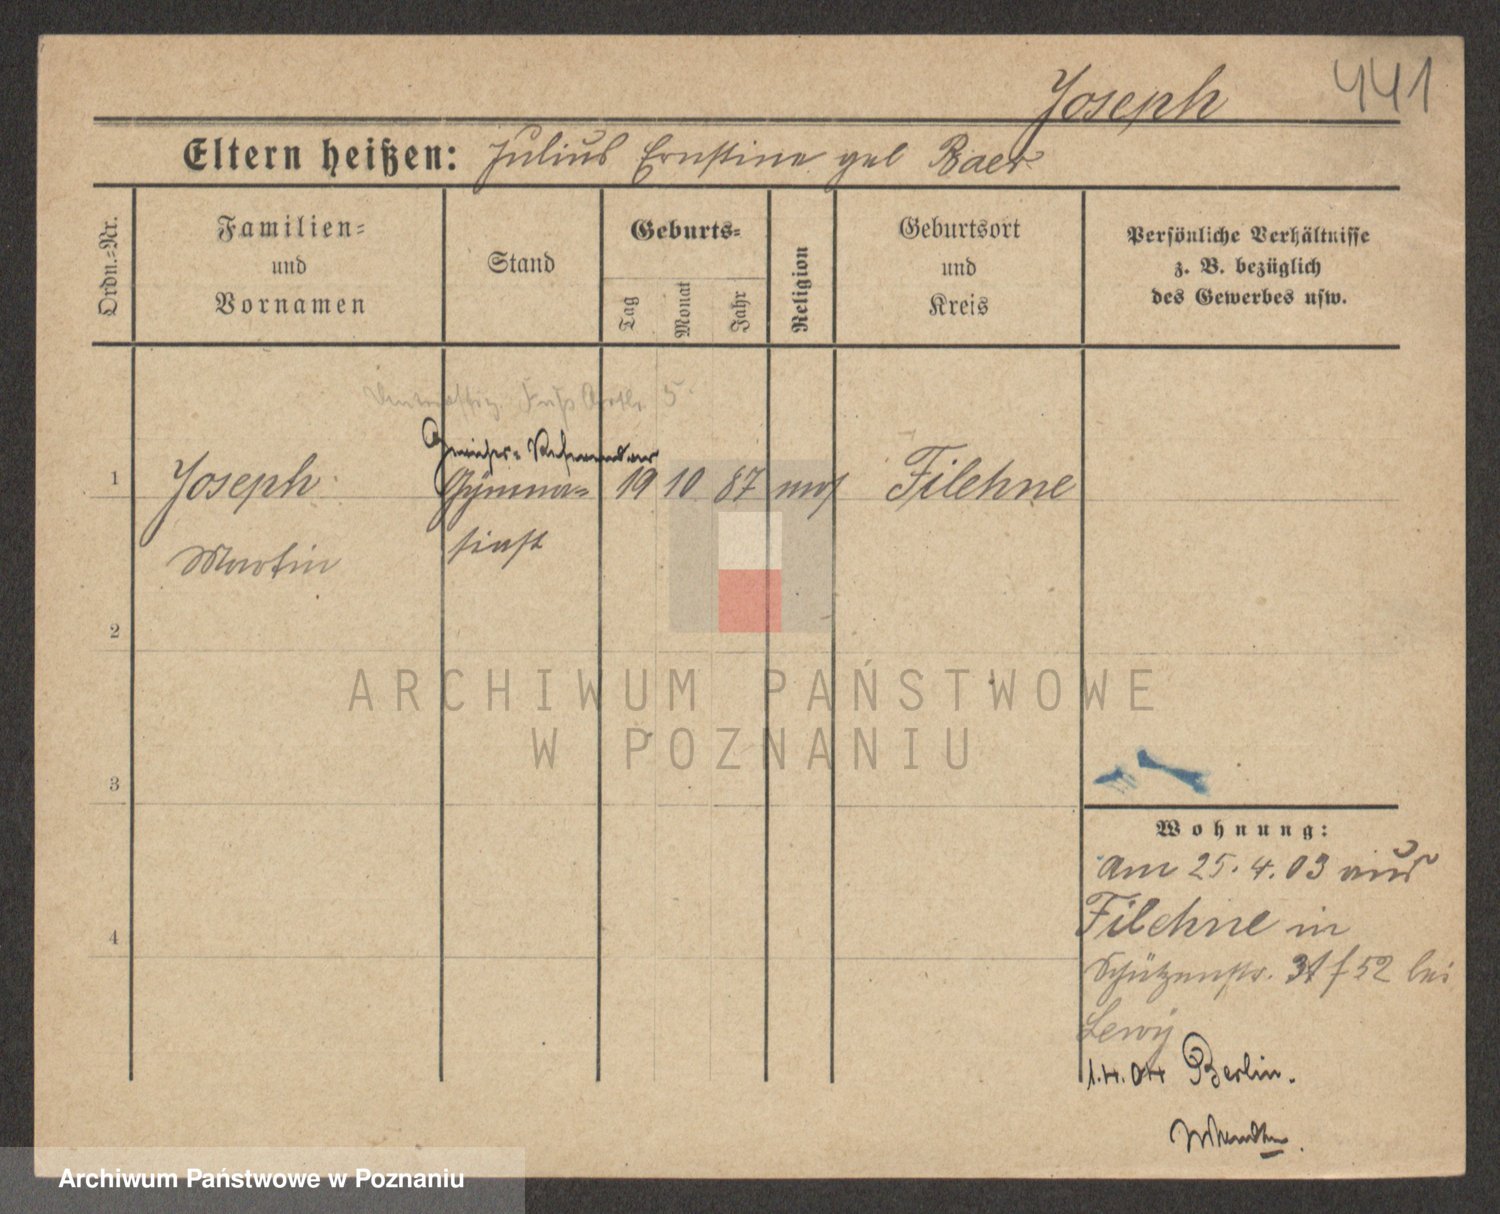 Joseph 441
Eltern heißen: Julius Ernstine geb Baer
Ordn.=Nr.
Familien=
und
Vornamen
Stand
Geburts=
Tag
Monat
Jahr
Religion
Geburtsort
und
Kreis
Persönliche Verhältnisse
z. B. bezüglich
des Gewerbes usw.
5.
Referendar
1 Joseph Gymna= 19 10 87 mos Filehne
Martin siast
2
ARCHIWUM PAŃSTWOWE
W POZNANIU
3
Wohnung:
Am 25.4.03 aus
Filehne in
4
Schützenstr. 31 f 52 bei
Lewy
1.4.04 Berlin.
Archiwum Państwowe w Poznaniu